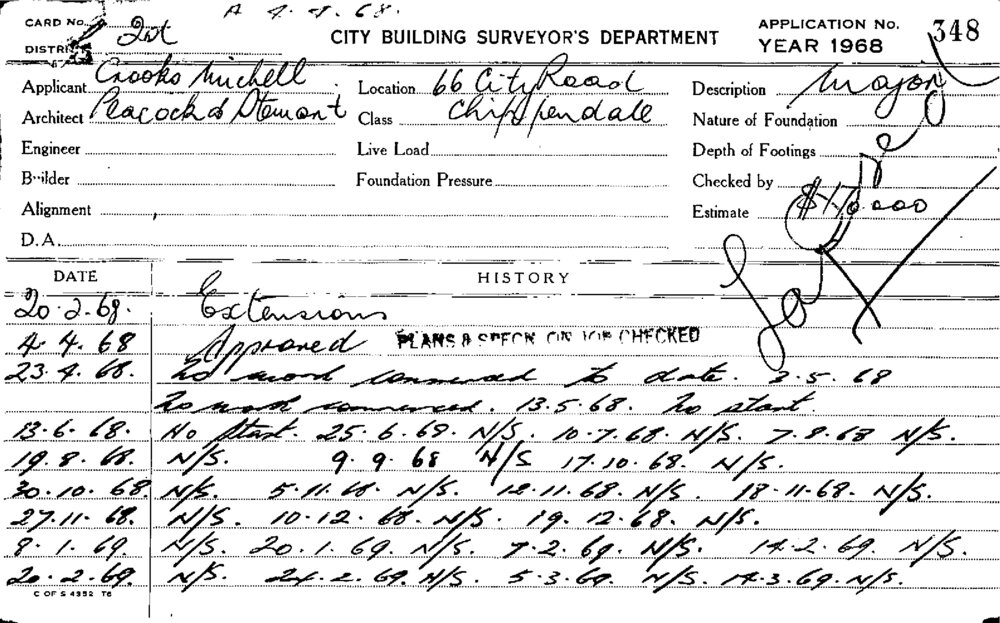 A 4.4.68.
CARD No. 2nd CITY BUILDING SURVEYOR'S DEPARTMENT APPLICATION No. 348
DISTRICT YEAR 1968
Applicant Crooks Michell Location 66 City Road Description Major
Architect Peacock & Stewart Class Chippendale Nature of Foundation
Engineer Live Load Depth of Footings
Builder Foundation Pressure Checked by
Alignment Estimate $170.000
D.A.
DATE HISTORY
20.2.68. Extensions
4.4.68 Approved PLANS & SPECN ON JOB CHECKED
23.4.68. No work commenced to date. 3.5.68
No work commenced. 13.5.68. No start.
13.6.68. No Start. 25.6.68. N/S. 10.7.68. N/S. 7.8.68 N/S.
19.8.68. N/S. 9.9.68 N/S 17.10.68. N/S.
30.10.68 N/S. 5.11.68. N/S. 12.11.68. N/S. 18.11.68. N/S.
27.11.68. N/S. 10.12.68. N/S. 19.12.68. N/S.
8.1.69 N/S. 20.1.69. N/S. 7.2.69. N/S. 14.2.69. N/S.
20.2.69. N/S. 24.2.69. N/S. 5.3.69 N/S. 14.3.69. N/S.
C OF S 4352 T6